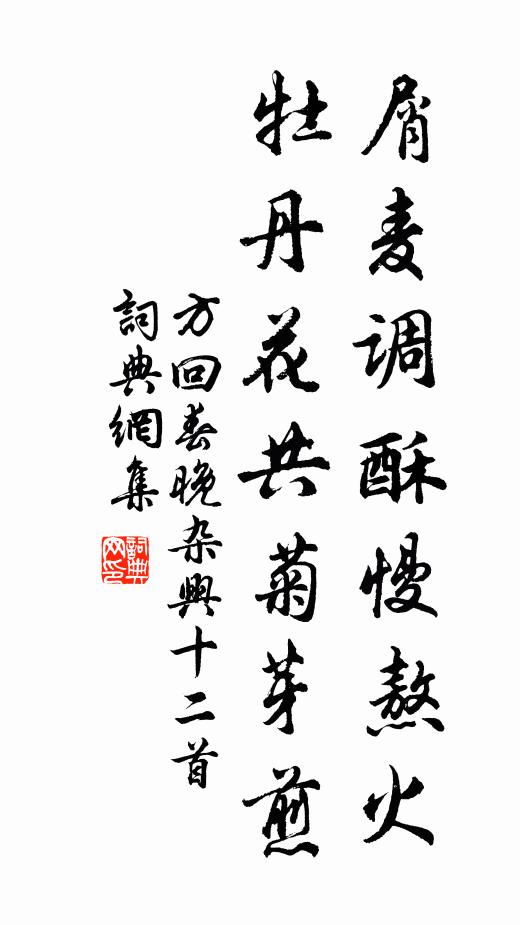 屑麦调酥慢熬火
牡丹花共菊芽煎
方回春晚杂興十二首
詞典網集
詞典网印